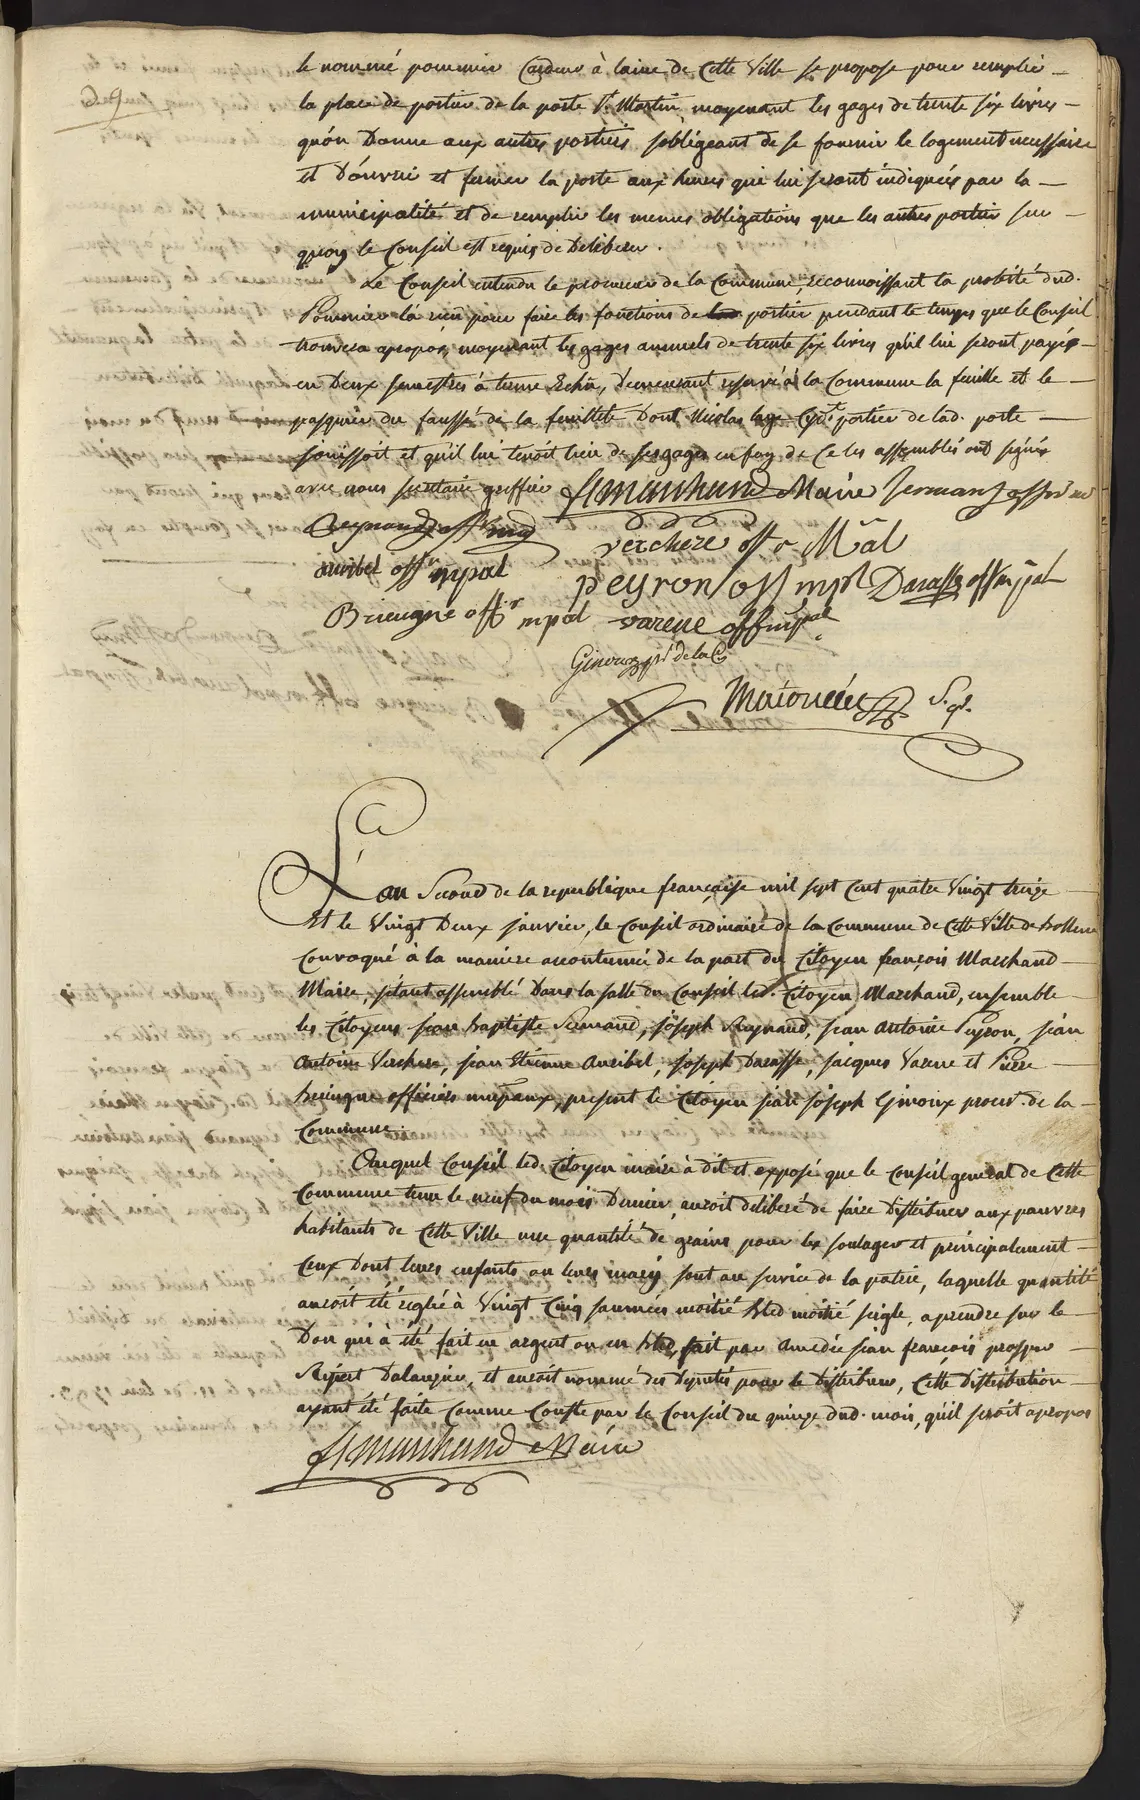 le nommé pommier Cardeur à laine de Cette Ville se propose pour remplir
la place de portier de la porte St. Martin, moyenant les gages de trente six livres
qu'on Donne aux autres portiers s'obligeant de se fournir le logement necessaire
et D'ouvrir et fermer la porte aux heures qui lui seront indiquées par la
municipalité et de remplir les memes obligations que les autres portier sur
quoy le Conseil est requis de Deliberer.
Le Conseil entendu le procureur de la Commune, reconnoissant la probité dud.
Pommier la reçu pour faire les fonctions de portier pendant le temps que le Conseil
trouvera apropos, moyenant les gages annuels de trente six livres qu'il lui seront payés
en Deux semestres à terme Echu, demeurant reservé à la Commune la feuille et le
pasquier du faussé de la feuillete Dont Nicolas portier de lad. porte
jouissoit et qu'il lui tenoit lieu de ses gages en foy de Ce les assemblés ont signés
avec nous secretaire greffier f marchand Maire
Reynaud off mp verchere off M.al
auribel off mpal peyron off mpl Daraffe off mpal
Bruugne off mpal varene off mpal
Giroux pr de la C
S. g.
L'an Second de la republique française mil sept Cent quatre Vingt treize
Et le Vingt Deux janvier, le Conseil ordinaire de la Commune de Cette Ville de bollene
Convoqué à la maniere accoutumée de la part du Citoyen françois Marchand
Maire, s'étant assemblé Dans la salle du Conseil led. Citoyen Marchand, ensemble
les Citoyens jean baptiste Sermand, joseph Reynaud, jean Antoine Peyron, jean
Antoine Verchere, jean Etienne Auribel, joseph Daraffe, jacques Varene et Pierre
officiers mupaux, present le Citoyen jean joseph Giroux procur. de la
Commune.
Auquel Conseil led. Citoyen maire à dit et exposé que le Conseil general de Cette
Commune tenu le neuf du mois Dernier, auroit deliberé de faire Distribuer aux pauvres
habitants de Cette Ville une quantité de grains pour les soulager et principalement
Ceux Dont leurs enfants ou leurs marys sont au service de la patrie, laquelle quantité
auroit été reglée à Vingt Cinq saumées moitié bled moitié seigle, a prendre sur le
Don qui à été fait en argent ou en bled, fait par Amedée jean françois prosper
Ripert Dalauzier, et auroit nommé des Deputés pour le distribuer, Cette Distribution
ayant été faite Comme Conste par le Conseil du quinze dud. mois, qu'il seroit apropos
f marchand Maire